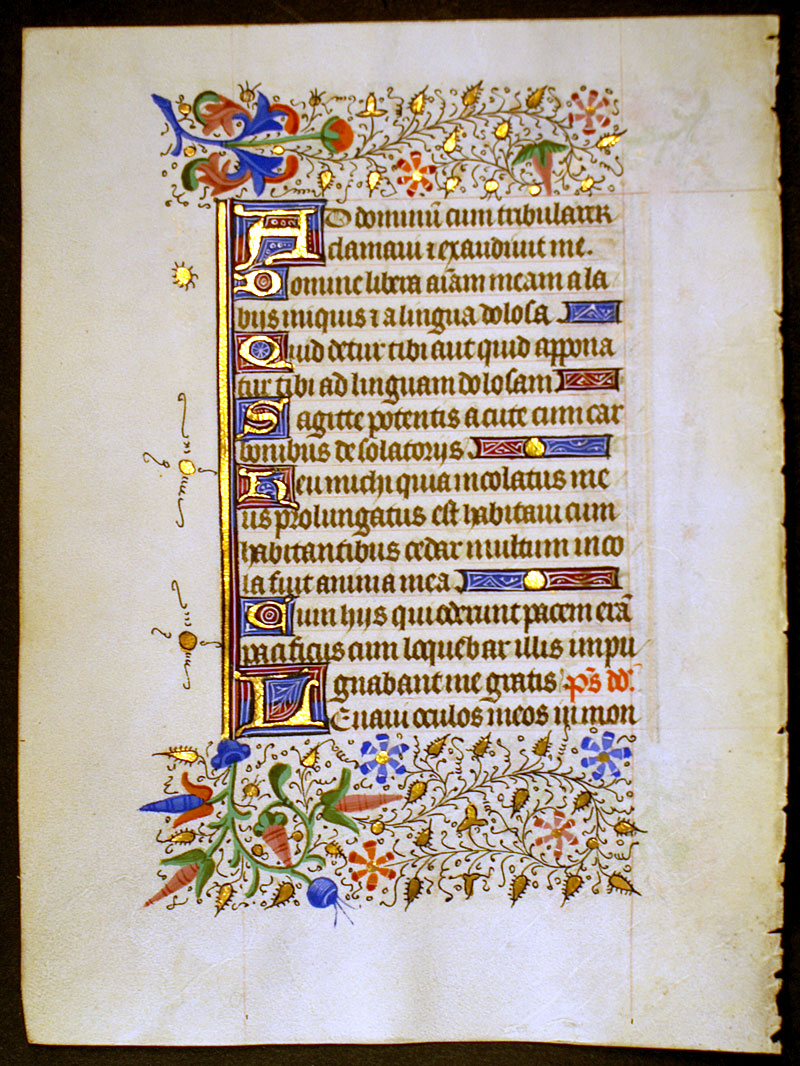 AD dominū cum tribularer
clamaui ⁊ exaudiuit me.
Domine libera aīam meam a la
biis iniquis ⁊ a lingua dolosa
Quid detur tibi aut quid appona
tur tibi ad linguam dolosam
Sagitte potentis acute cum car
bonibus desolatorijs.
Heu michi quia incolatus me
us prolungatus est habitaui cum
habitantibus cedar multum inco
la fuit anima mea.
Cum hijs qui oderunt pacem erā
pacificus cum loquebar illis impu
gnabant me gratis p̄s dd.
LEuaui oculos meos in mon